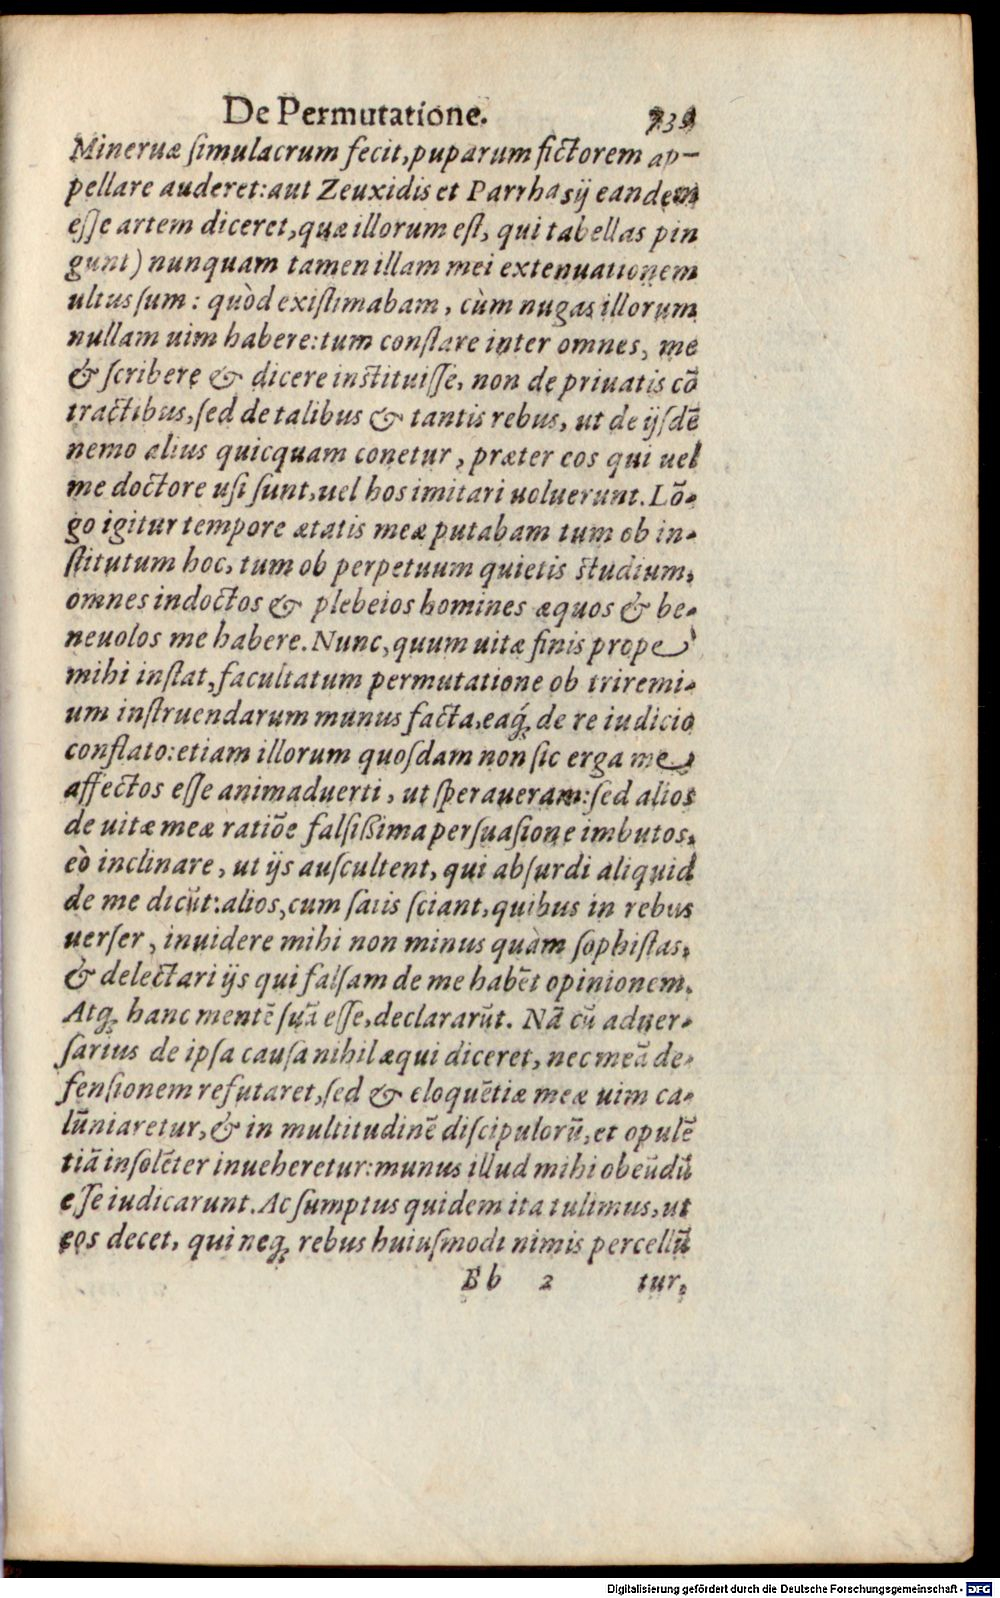 De Permutatione.
Mineruæ ſimulacrum fecit, puparum fictorem ap-
pellare auderet: aut Zeuxidis et Parrhasij eandem
eſſe artem diceret, quæ illorum eſt, qui tabellas pin
gunt) nunquam tamen illam mei extenuationem
ultus ſum: quòd exiſtimabam, cùm nugas illorum
nullam uim habere: tum conſtare inter omnes, me
& ſcribere & dicere inſtituiſſe, non de priuatis cō
tractibus, ſed de talibus & tantis rebus, ut de ijſdē
nemo alius quicquam conetur, præter eos qui uel
me doctore uſi ſunt, uel hos imitari uoluerunt. Lō-
go igitur tempore ætatis meæ putabam tum ob in-
ſtitutum hoc, tum ob perpetuum quietis ſtudium,
omnes indoctos & plebeios homines æquos & be-
neuolos me habere. Nunc, quum uitæ finis prope
mihi inſtat, facultatum permutatione ob triremi-
um inſtruendarum munus facta, eaq́; de re iudicio
conflato: etiam illorum quoſdam non ſic erga me
affectos eſſe animaduerti, ut ſperaueram: ſed alios
de uitæ meæ ratiōe falſißima perſuaſione imbutos,
eò inclinare, ut ijs auſcultent, qui abſurdi aliquid
de me dicūt: alios, cum ſatis ſciant, quibus in rebus
uerſer, inuidere mihi non minus quàm ſophiſtas,
& delectari ijs qui falſam de me habēt opinionem.
Atq; hanc mentē ſuā eſſe, declararūt. Nā cū aduer-
ſarius de ipſa cauſa nihil æqui diceret, nec meā de-
fenſionem refutaret, ſed & eloquētiæ meæ uim ca-
lūniaretur, & in multitudinē diſcipulorū, et opulē
tiā inſolēter inueheretur: munus illud mihi obeūdū
eſſe iudicarunt. Ac ſumptus quidem ita tulimus, ut
eos decet, qui neq; rebus huiuſmodi nimis percellū
Bb 2 tur,
Digitalisierung gefördert durch die Deutsche Forschungsgemeinschaft - DFG